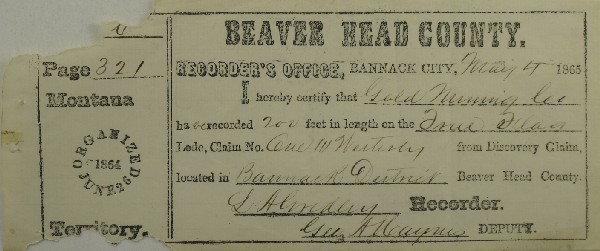 Page 321
Montana
ORGANIZED
1864
JUNE 26
Territory.
BEAVER HEAD COUNTY.
RECORDER'S OFFICE, BANNACK CITY, May 4 1865
I hereby certify that Gold Mining Co
have recorded 200 feet in length on the True
Lode, Claim No. One W Westerly from Discovery Claim,
located in Bannack District Beaver Head County.
Recorder.
Geo DEPUTY.